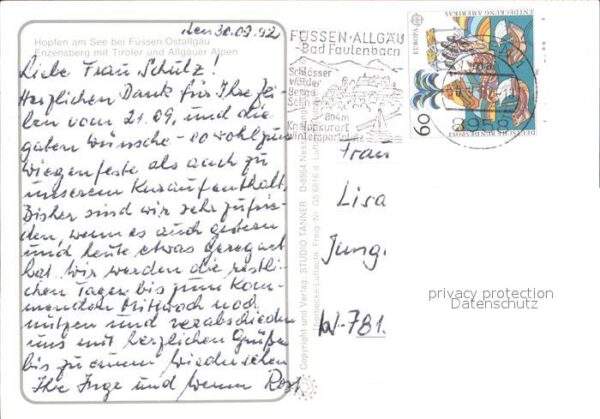 den 30.09.92
Hopfen am See bei Füssen/Ostallgäu
Enzensberg mit Tiroler und Allgäuer Alpen
Liebe Frau Schulz!
Herzlichen Dank für Ihre Zei-
len vom 21.09. und die
guten Wünsche - sowohl zum
Wiegenfeste als auch zu
unserem Kuraufenthalt.
Bisher sind wir sehr zufrie-
den, wenn es auch gestern
und heute etwas geregnet
hat. Wir werden die restli-
chen Tage bis zum kom-
menden Mittwoch noch
nutzen und verabschieden
uns mit herzlichen Grüßen
bis zu einem Wiedersehen
Ihre Inge und
Copyright und Verlag: STUDIO TANNER
FÜSSEN-ALLGÄU
-Bad Faulenbach
Schlösser
Wälder
Berge
Seen
804m
Kneippkurort
Wintersportplatz
8958
EUROPA
ENTDECKUNG AMERIKAS
60
DEUTSCHE BUNDESPOST
Frau
Lisa
Jung.
W-781.
privacy protection
Datenschutz